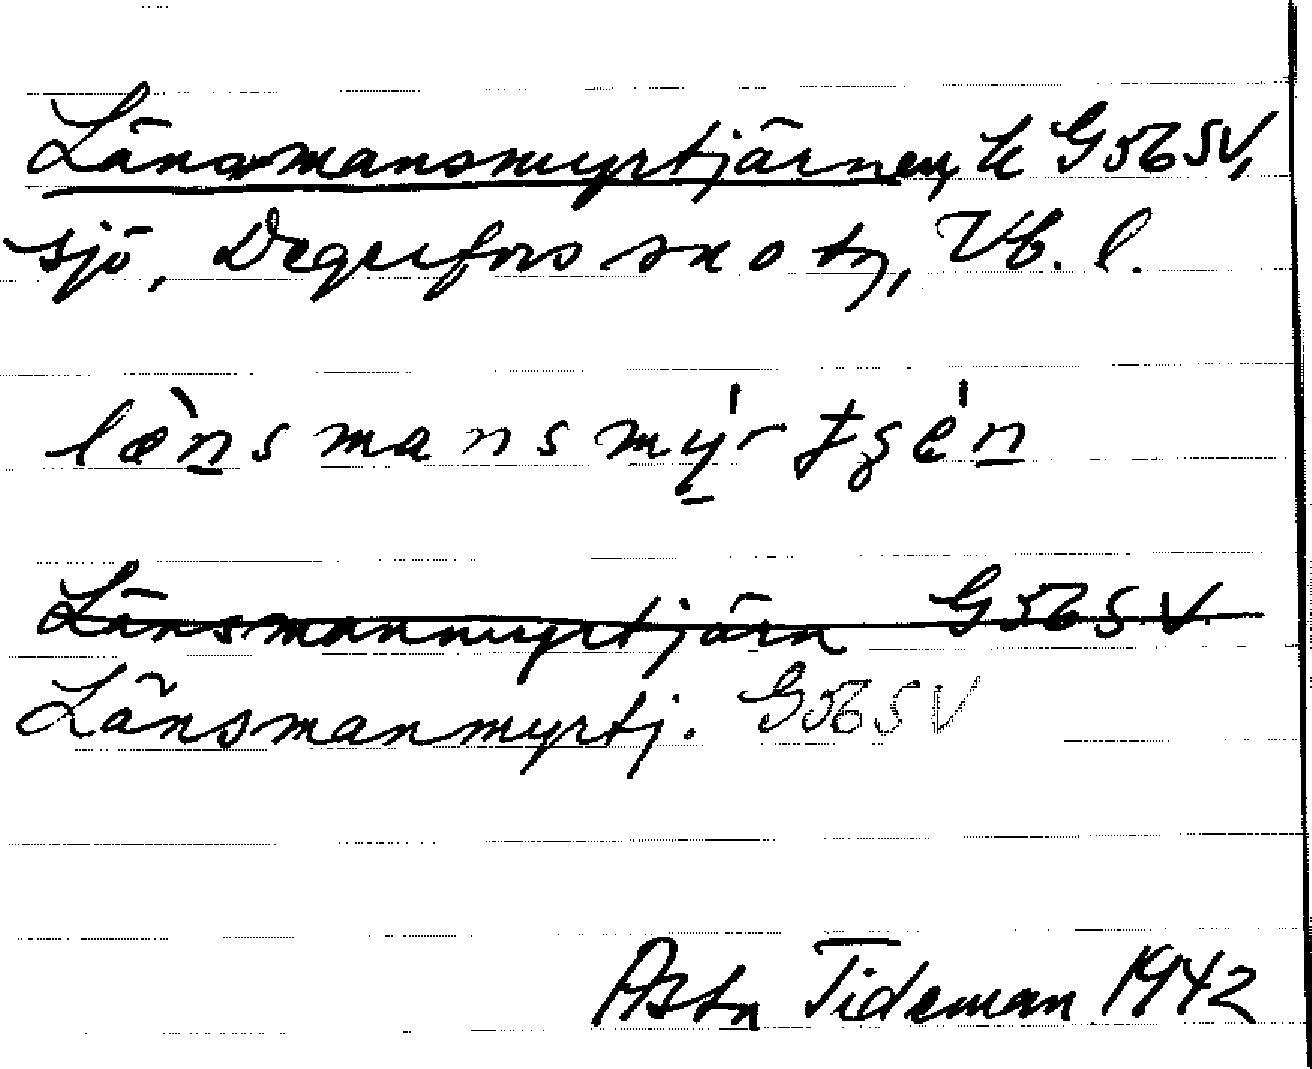 Länsmansmyrtjärnen, k G56SV,
sjö, Degerfors sn o tg, Vb. l.
læ̀nsmansmy̍rtʒe̍n
Länsmanmyrtjärn G56SV
Länsmanmyrtj. G56SV
Asta Tideman 1942